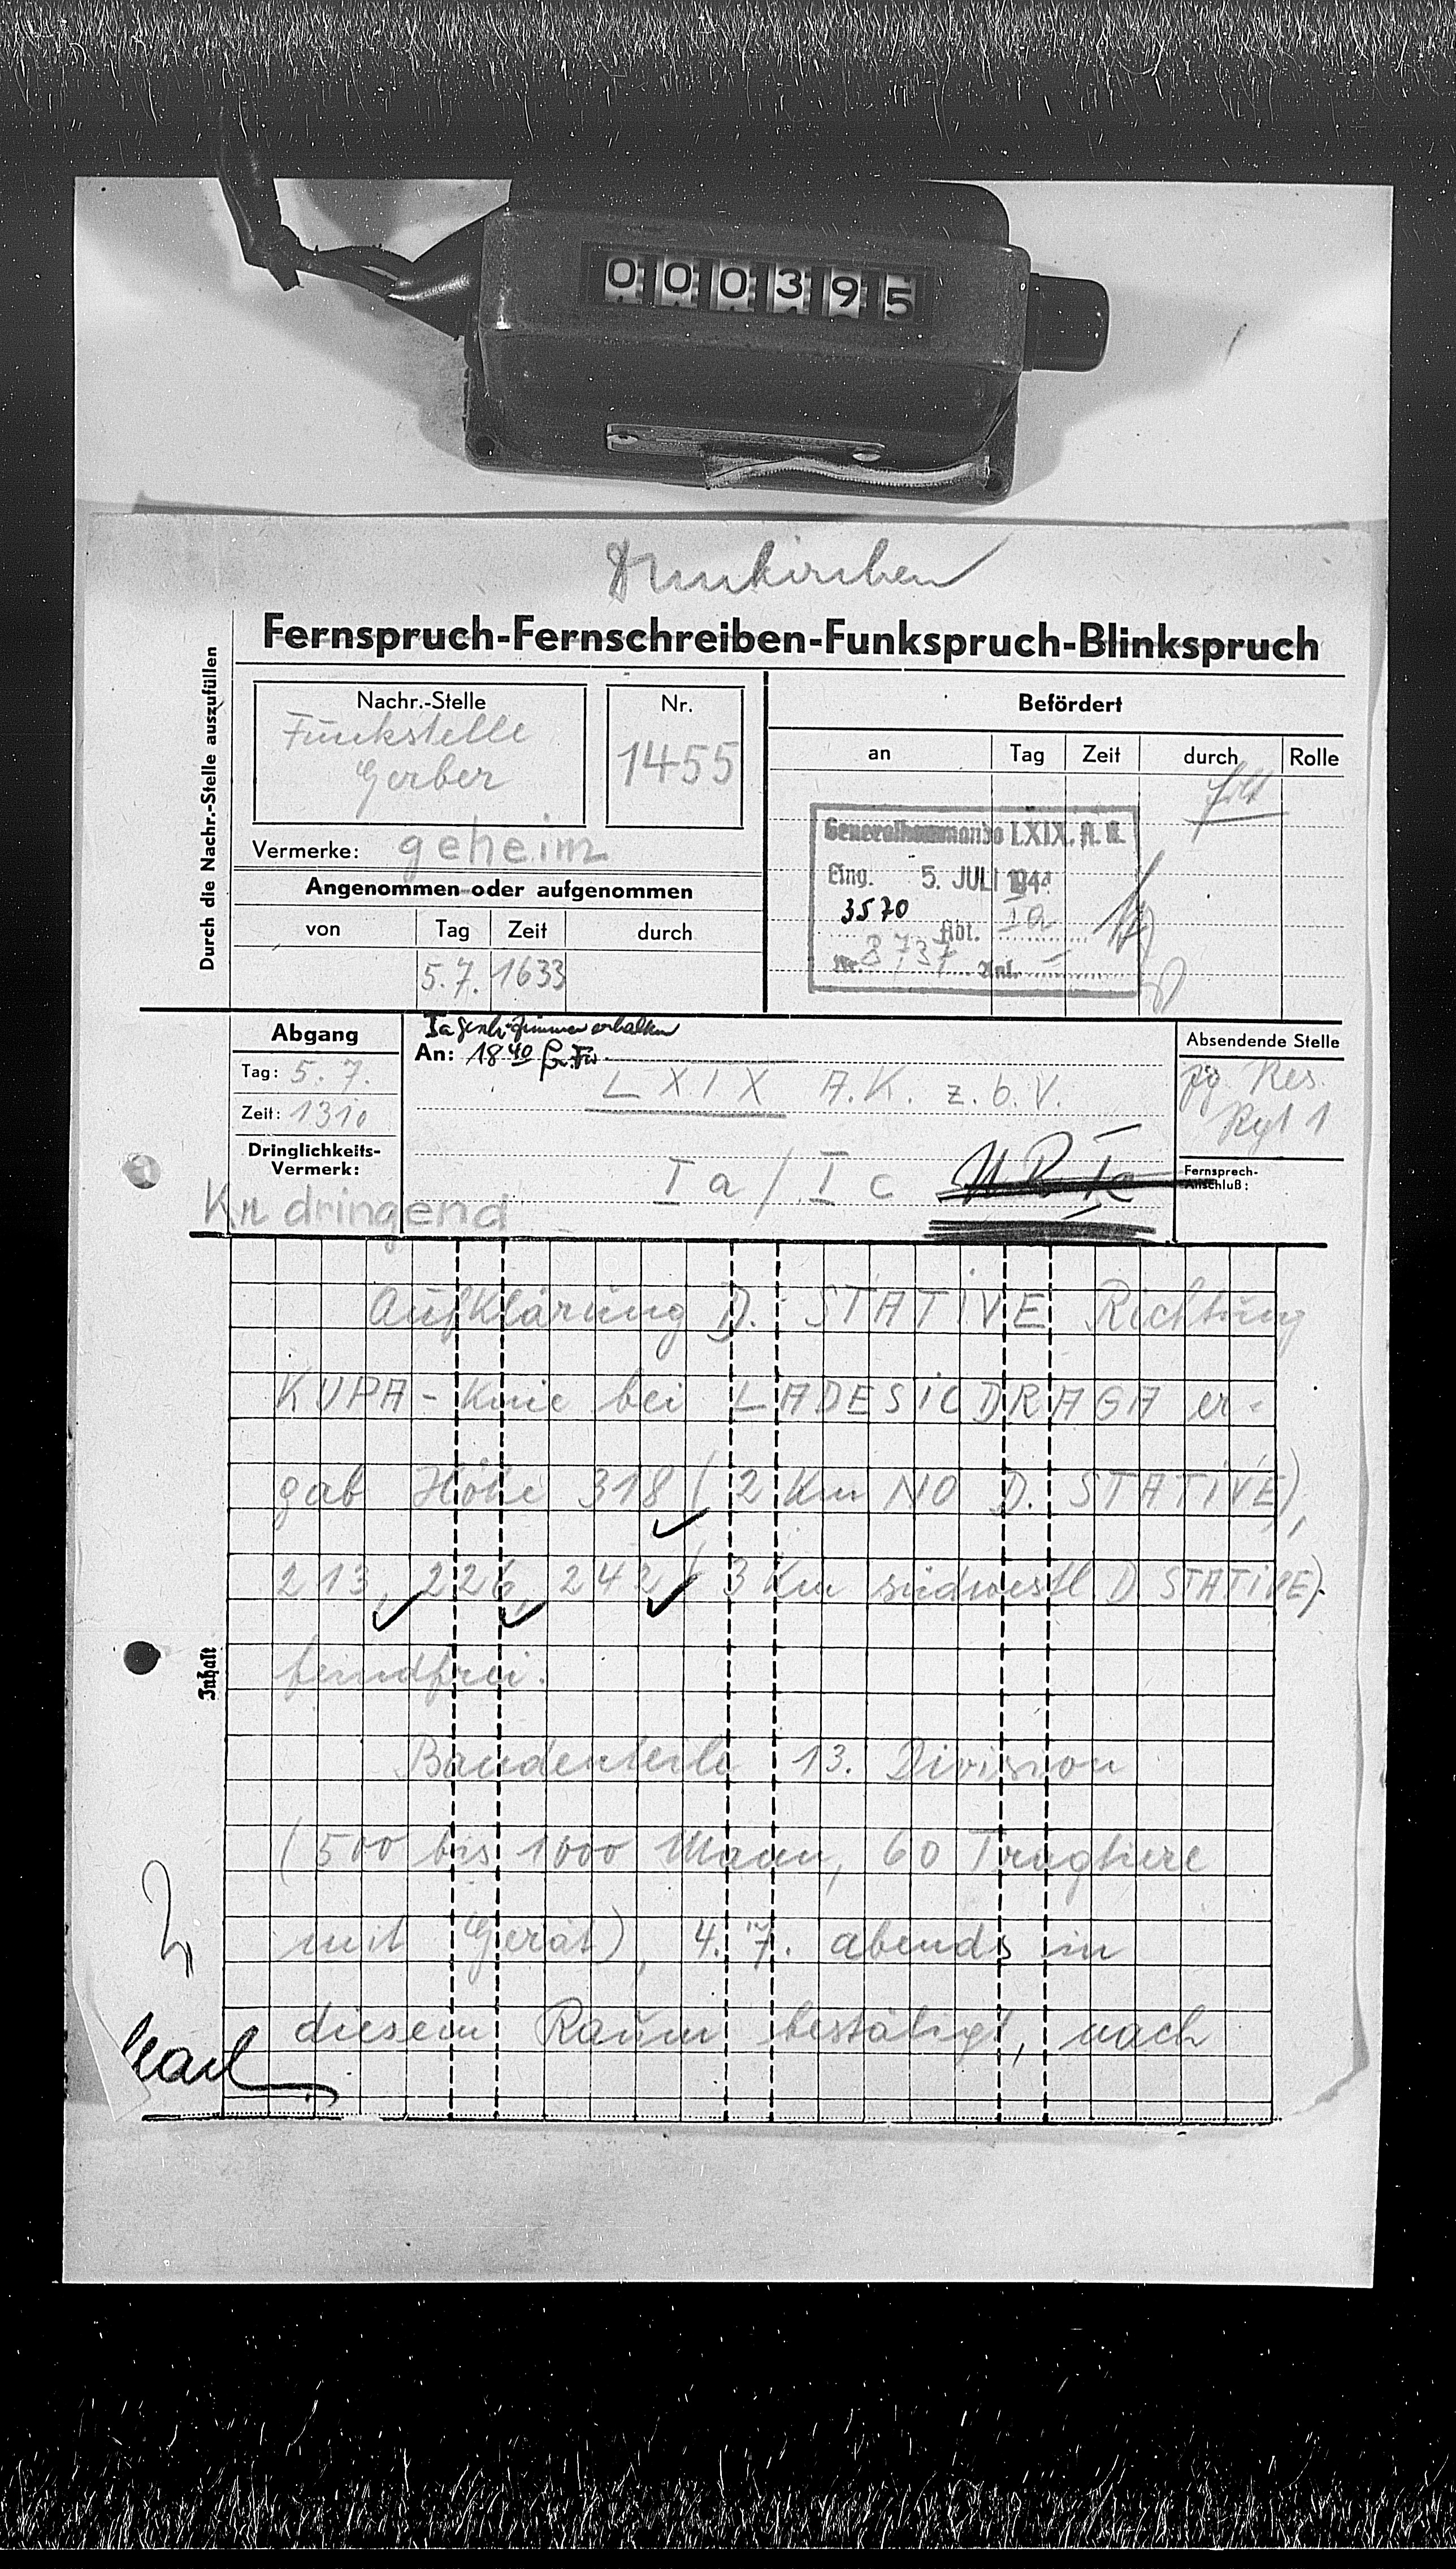 000395
Dünkirchen
Fernspruch-Fernschreiben-Funkspruch-Blinkspruch
Durch die Nachr.-Stelle auszufüllen
Nachr.-Stelle
Funkstelle
Gerber
Nr.
1455
Vermerke: geheim
Angenommen oder aufgenommen
von Tag Zeit durch
5.7. 1633
Befördert
an Tag Zeit durch Rolle
Generalkommando LXIX. A. K.
Eing. 5. JULI 1944
3570 Abt. Ia
Nr. 8737 Anl. –
Abgang
Tag: 5. 7.
Zeit: 1310
Dringlichkeits-
Vermerk:
Kr dringend
erhalten
An: 18 40
LXIX A.K. z.b.V.
Ia / Ic
Absendende Stelle
Res.
Rgt 1
Fernsprech-
Anschluß:
Inhalt
Aufklärung D. STATIVE Richtung
KUPA-Knie bei LADESICDRAGA er-
gab Höhe 318 (2 Km NO D. STATIVE),
213, 226, 242 (3 Km südwestl. D. STATIVE)
feindfrei.
Bandenteile 13. Division
(500 bis 1000 Mann, 60 Tragtiere
mit Gerät), 4. 7. abends in
diesem Raum bestätigt, nach